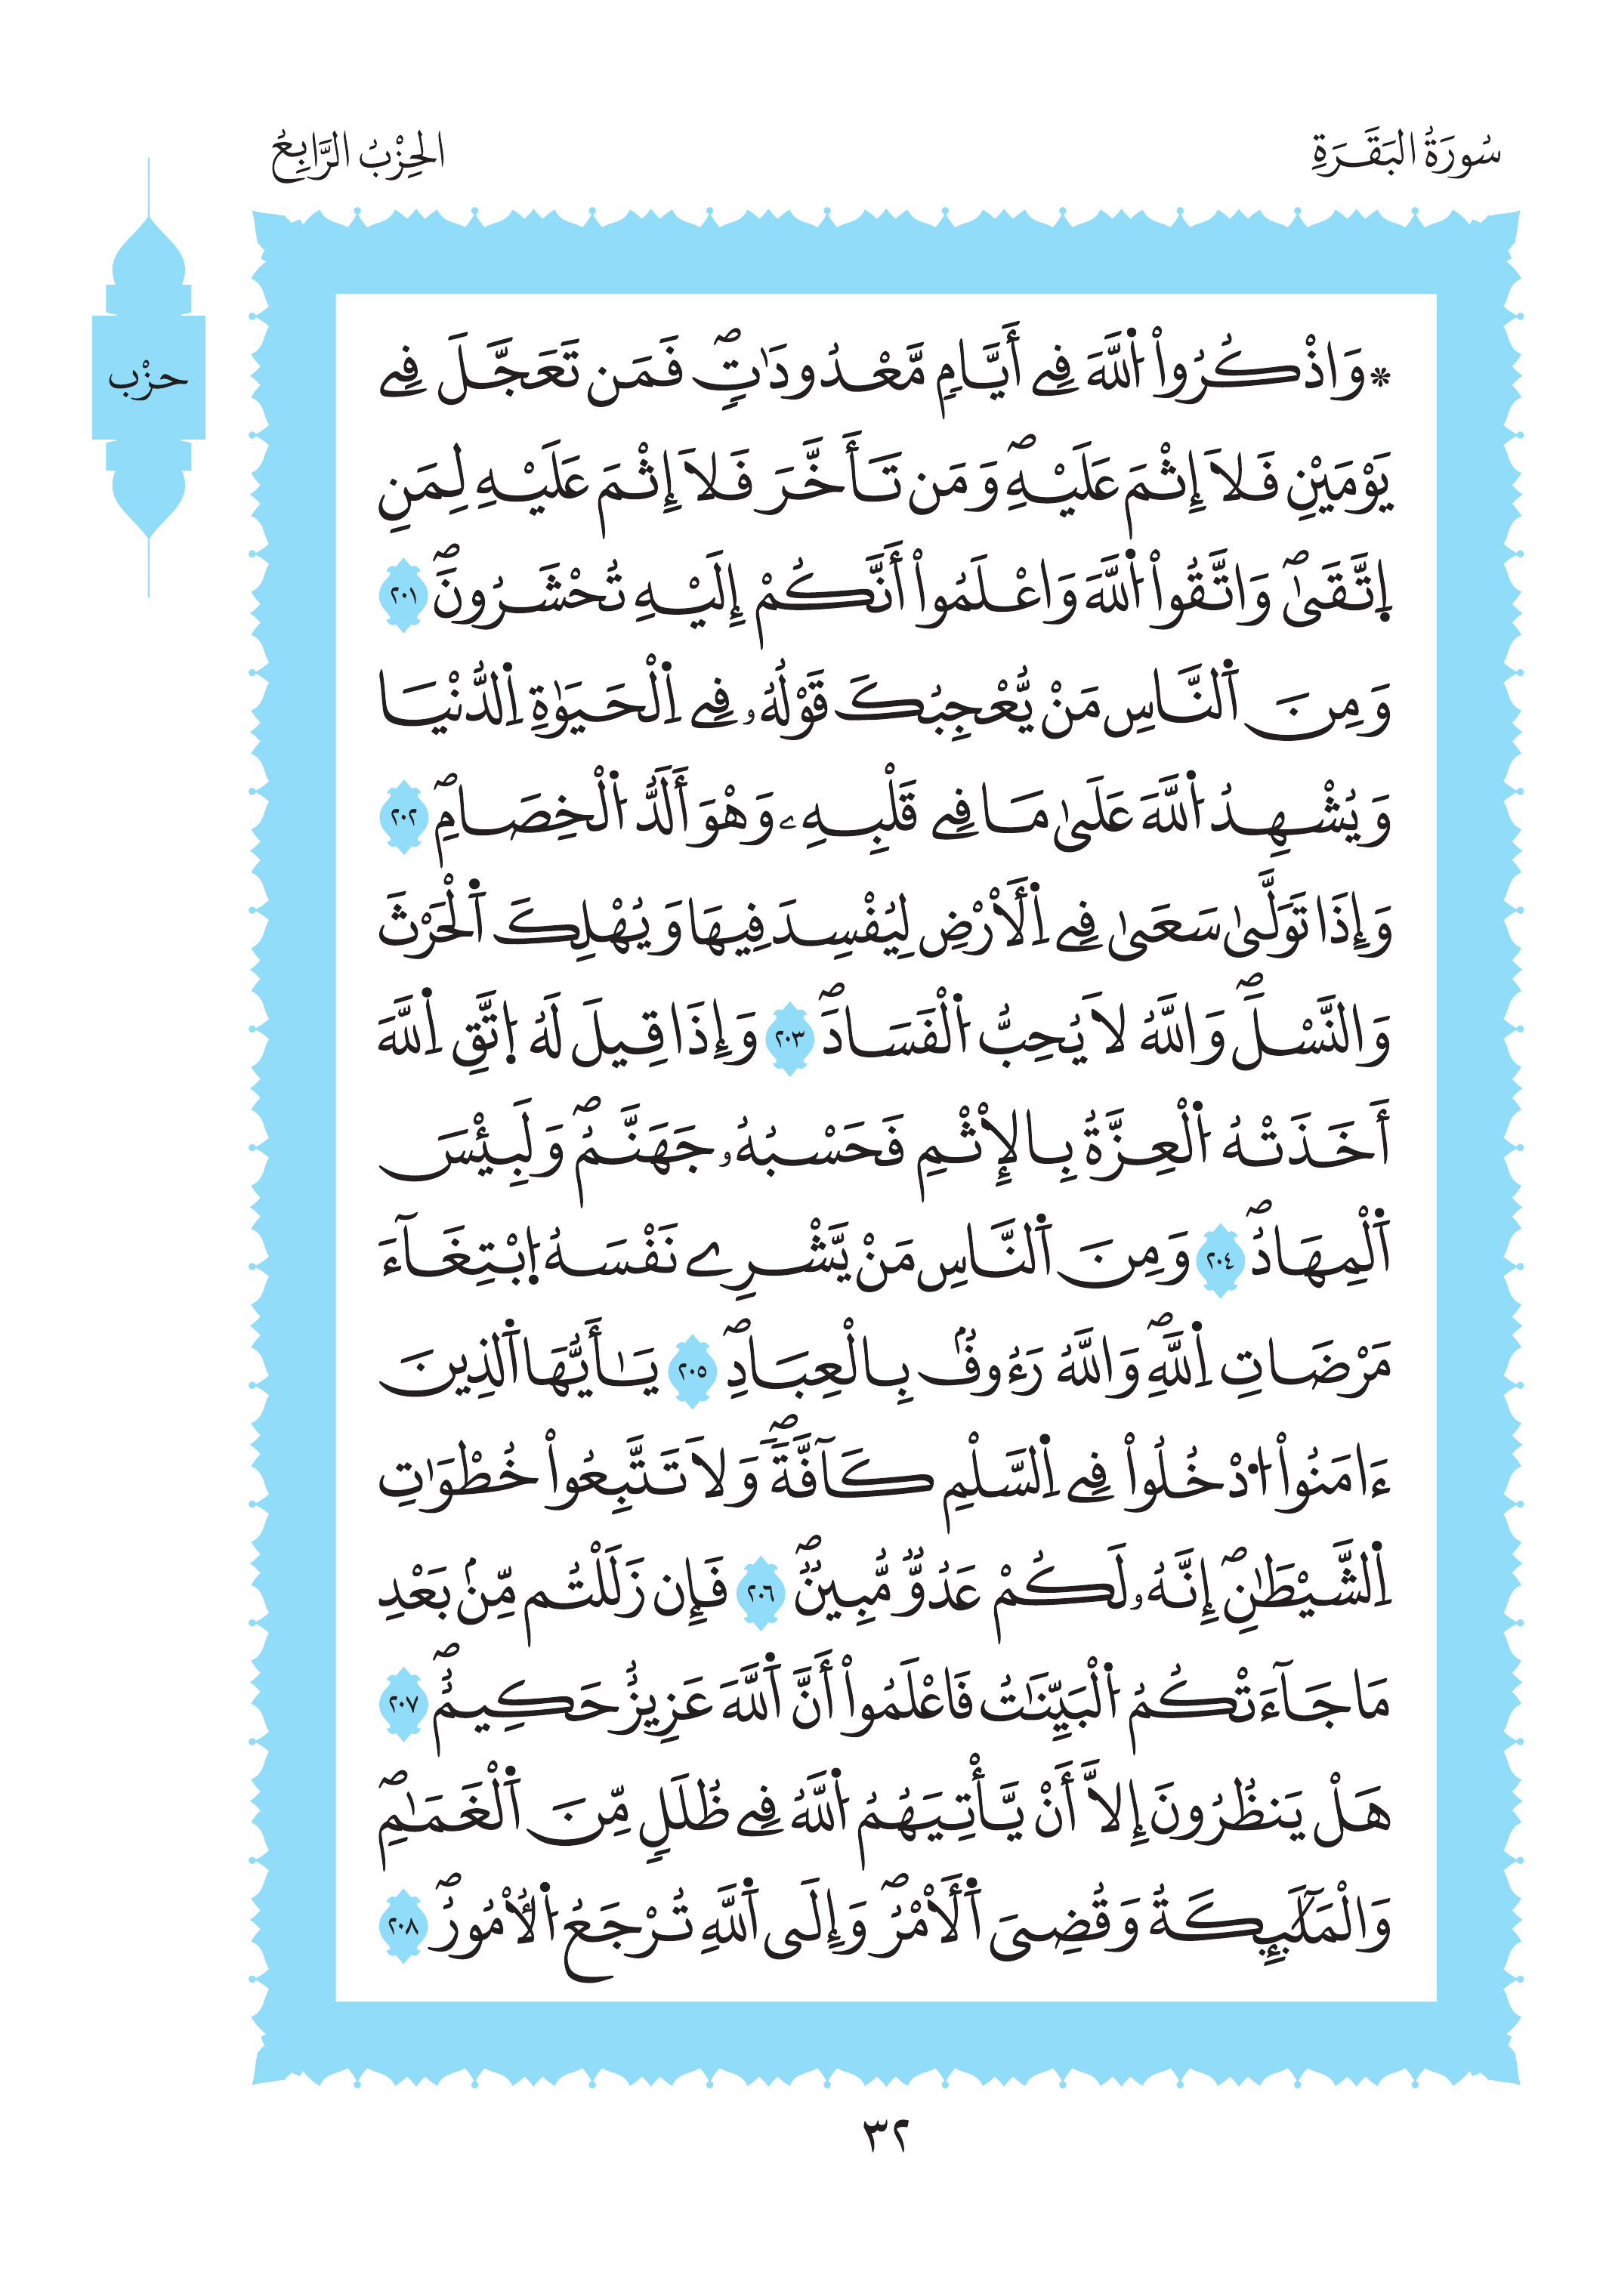 سُورَةُ البَقَرَةِ
الحِزْبُ الرَّابِعُ
حِزْب
*وَاذْكُرُواْ اُ۬للَّهَ فِے أَيَّامٖ مَّعْدُودَٰتٖۖ فَمَن تَعَجَّلَ فِے
يَوْمَيْنِ فَلَا إِثْمَ عَلَيْهِۖ وَمَن تَأَخَّرَ فَلَا إِثْمَ عَلَيْهِ لِمَنِ
اِ۪تَّقَىٰۖ وَاتَّقُواْ اُ۬للَّهَ وَاعْلَمُواْ أَنَّكُمْ إِلَيْهِ تُحْشَرُونَۖ ٢٠١
وَمِنَ اَ۬لنَّاسِ مَنْ يُّعْجِبُكَ قَوْلُهُۥ فِے اِ۬لْحَيَوٰةِ اِ۬لدُّنْيَا
وَيُشْهِدُ اُ۬للَّهَ عَلَىٰ مَا فِے قَلْبِهِۦ وَهْوَ أَلَدُّ اُ۬لْخِصَامِۖ ٢٠٢
وَإِذَا تَوَلَّىٰ سَعَىٰ فِے اِ۬لَارْضِ لِيُفْسِدَ فِيهَا وَيُهْلِكَ اَ۬لْحَرْثَ
وَالنَّسْلَۖ وَاللَّهُ لَا يُحِبُّ اُ۬لْفَسَادَۖ ٢٠٣ وَإِذَا قِيلَ لَهُ اُ۪تَّقِ اِ۬للَّهَ
أَخَذَتْهُ اُ۬لْعِزَّةُ بِالإِثْمِ فَحَسْبُهُۥ جَهَنَّمُۖ وَلَبِئْسَ
اَ۬لْمِهَادُۖ ٢٠٤ وَمِنَ اَ۬لنَّاسِ مَنْ يَّشْرِے نَفْسَهُ اُ۪بْتِغَآءَ
مَرْضَاتِ اِ۬للَّهِۖ وَاللَّهُ رَءُوفُۢ بِالْعِبَادِۖ ٢٠٥ يَٰأَيُّهَا اَ۬لذِينَ
ءَامَنُواْ اُ۟دْخُلُواْ فِے اِ۬لسَّلْمِ كَآفَّةٗۖ وَلَا تَتَّبِعُواْ خُطْوَٰتِ
اِ۬لشَّيْطَٰنِۖ إِنَّهُۥ لَكُمْ عَدُوّٞ مُّبِينٞۖ ٢٠٦ فَإِن زَلَلْتُم مِّنۢ بَعْدِ
مَا جَآءَتْكُمُ اُ۬لْبَيِّنَٰتُ فَاعْلَمُواْ أَنَّ اَ۬للَّهَ عَزِيزٌ حَكِيمٌۖ ٢٠٧
هَلْ يَنظُرُونَ إِلَّا أَنْ يَّأْتِيَهُمُ اُ۬للَّهُ فِے ظُلَلٖ مِّنَ اَ۬لْغَمَٰمِۖ
وَالْمَلَٰٓئِكَةُ وَقُضِىَ اَ۬لَامْرُۖ وَإِلَى اَ۬للَّهِ تُرْجَعُ اُ۬لُامُورُۖ ٢٠٨
٣٢